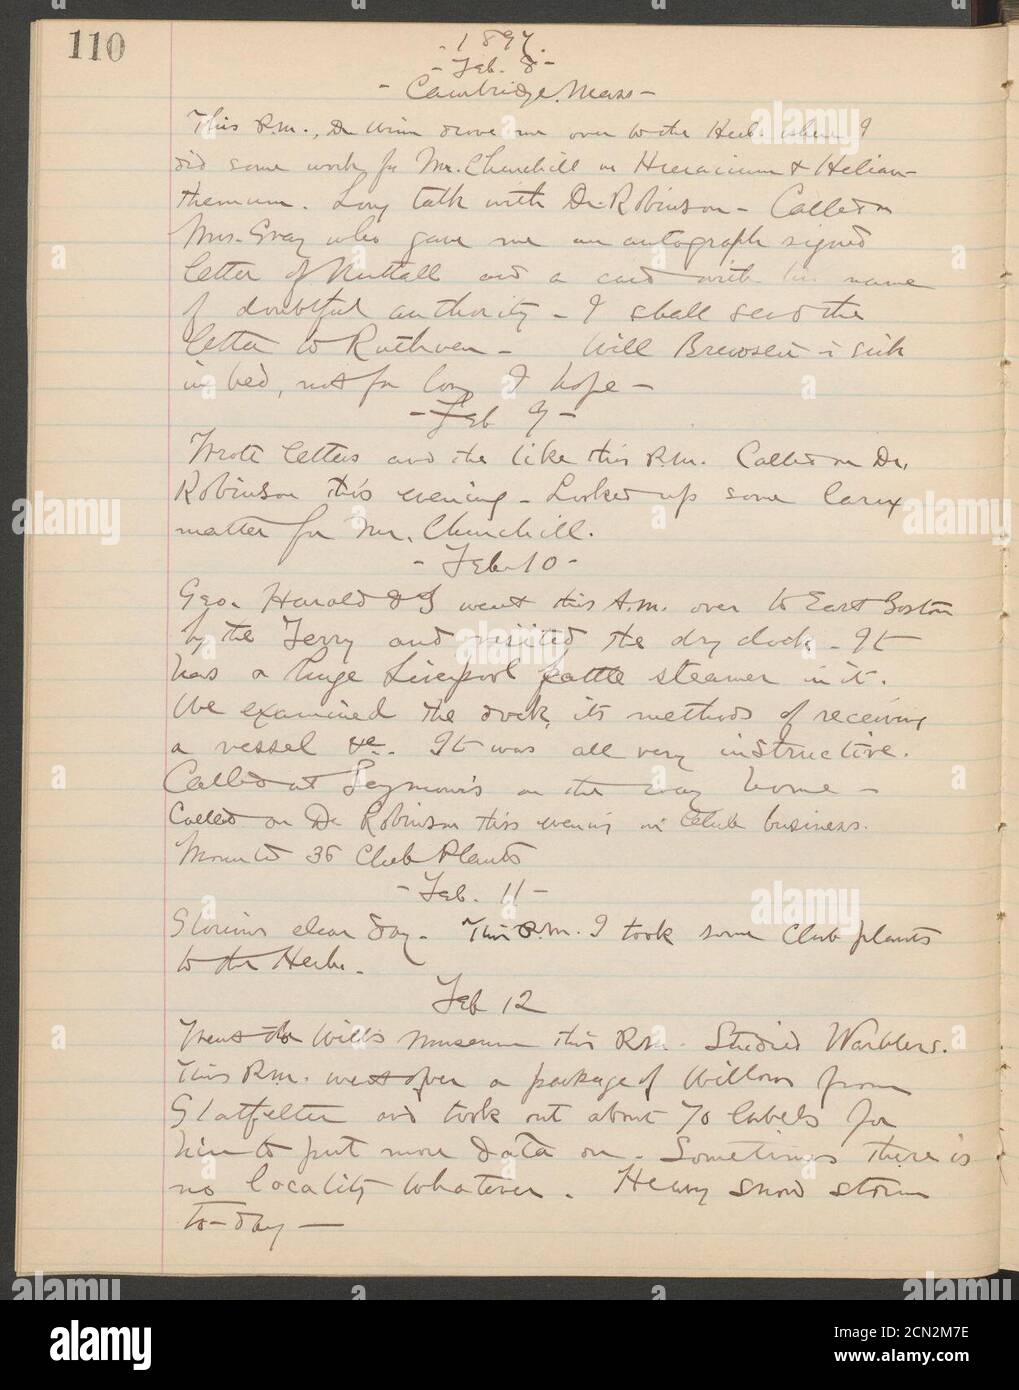 110
- 1897. -
- Feb. 8 -
- Cambridge, Mass -
This P.M., Dr Winn drove me over to the Herb. where I
did some work for Mr. Churchill on Hieracium & Helian-
themum. Long talk with Dr. Robinson - Called on
Mrs. Gray who gave me an autograph signed
letter of Nuttall and a card with his name
of doubtful authority - I shall send the
letter to Ruthven - Will Brewster is sick
in bed, not for long I hope -
- Feb 9 -
Wrote letters and the like this P.M. Called on Dr.
Robinson this evening - Looked up some Carex
matter for Mr. Churchill.
- Feb. 10 -
Geo. Harold & I went this A.M. over to East Boston
by the Ferry and visited the dry dock - It
has a huge Liverpool cattle steamer in it.
We examined the dock, its methods of receiving
a vessel &c. It was all very instructive.
Called at Seymour's on the way home -
Called on Dr Robinson this evening on Club business.
Mounted 36 Club Plants
- Feb. 11 -
Glorious clear day. This P.M. I took some Club plants
to the Herb. -
Feb 12
Went to Will's Museum this P.M. Studied Warblers.
This P.M. went over a package of Willows from
Glatfelter and took out about 70 labels for
him to put more data on - Sometimes there is
no locality whatever. Heavy snow storm
to-day -
alamy
a
alamy
Image ID: 2CN2M7E
www.alamy.com